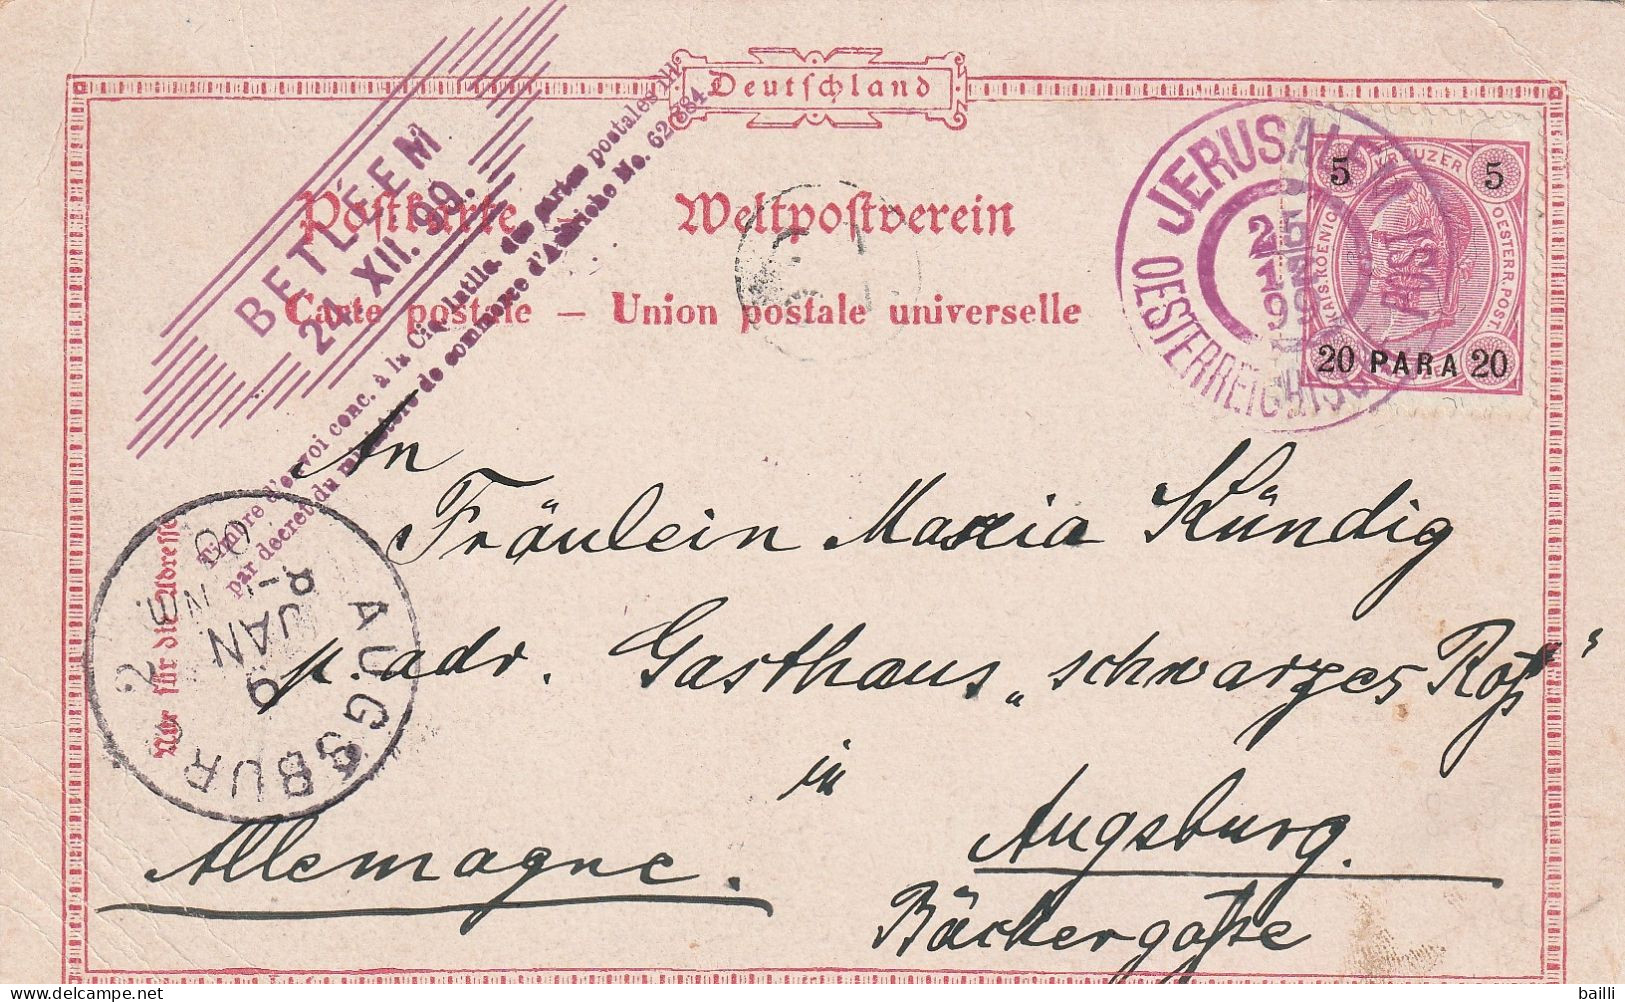 Deutschland
Postkarte — Weltpostverein
Carte postale — Union postale universelle
Nur für die Adresse
BETLEEM
24. XII. 99.
Timbre d'envoi conc. à la
des cartes postales
par decret du ministère de commerce d'Autriche No. 62 884
JERUSALEM
25
12
99
OESTERREICHISCHE POST
5 KREUZER 5
KAIS. KOENIGL. OESTERR. POST
20 PARA 20
An
Fräulein Maria Kündig
p. adr. Gasthaus „schwarzes Roß"
in
Augsburg.
Allemagne.
Bäckergaße
AUGSBURG 2
9
JAN
00
bailli